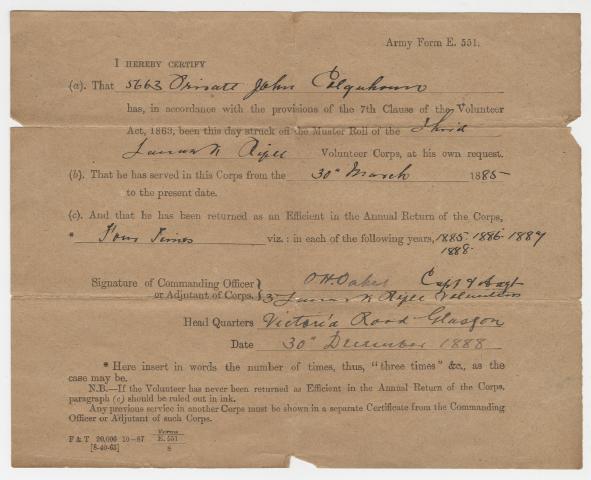 Army Form E. 551.
I HEREBY CERTIFY
(a). That 5663 Private John Colquhoun
has, in accordance with the provisions of the 7th Clause of the Volunteer
Act, 1863, been this day struck off the Muster Roll of the Third
Lanark Rifle Volunteer Corps, at his own request.
(b). That he has served in this Corps from the 30th March 1885
to the present date.
(c). And that he has been returned as an Efficient in the Annual Return of the Corps,
* Four Times viz.: in each of the following years, 1885. 1886. 1887
1888.
Signature of Commanding Officer } Oakes Capt & Adjt
or Adjutant of Corps, } 3 Lanark Rifle Volunteers
Head Quarters Victoria Road Glasgow
Date 30th December 1888
* Here insert in words the number of times, thus, "three times" &c., as the
case may be.
N.B.—If the Volunteer has never been returned as Efficient in the Annual Return of the Corps,
paragraph (c) should be ruled out in ink.
Any previous service in another Corps must be shown in a separate Certificate from the Commanding
Officer or Adjutant of such Corps.
F & T 20,000 10-87 Forms
E. 551
8
[8-40-63]